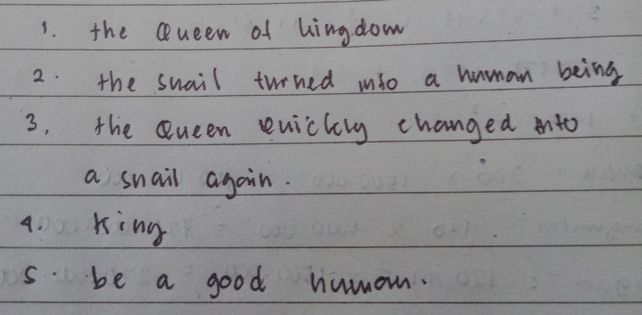 1. the Queen of kingdom
2. the snail turned into a human being
3. the Queen quickly changed into
a snail again.
4. King
5. be a good human.